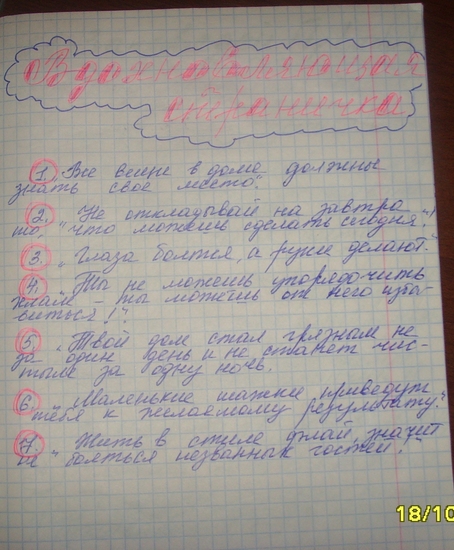 Вдохновляющая
страничка
1. Все вещи в доме должны
знать своё место".
2. „Не откладывай на завтра
то, что можешь сделать сегодня"!
3. „Глаза боятся, а руки делают."
4. „Ты не можешь упорядочить
хлам – ты можешь от него изба-
виться!"
5. „Твой дом стал грязным не
за один день и не станет чис-
тым за одну ночь.
6. „Маленькие шажки приведут
тебя к желаемому результату."
7. „Жить в стиле флай, значит
не бояться незванных гостей!"
18/10